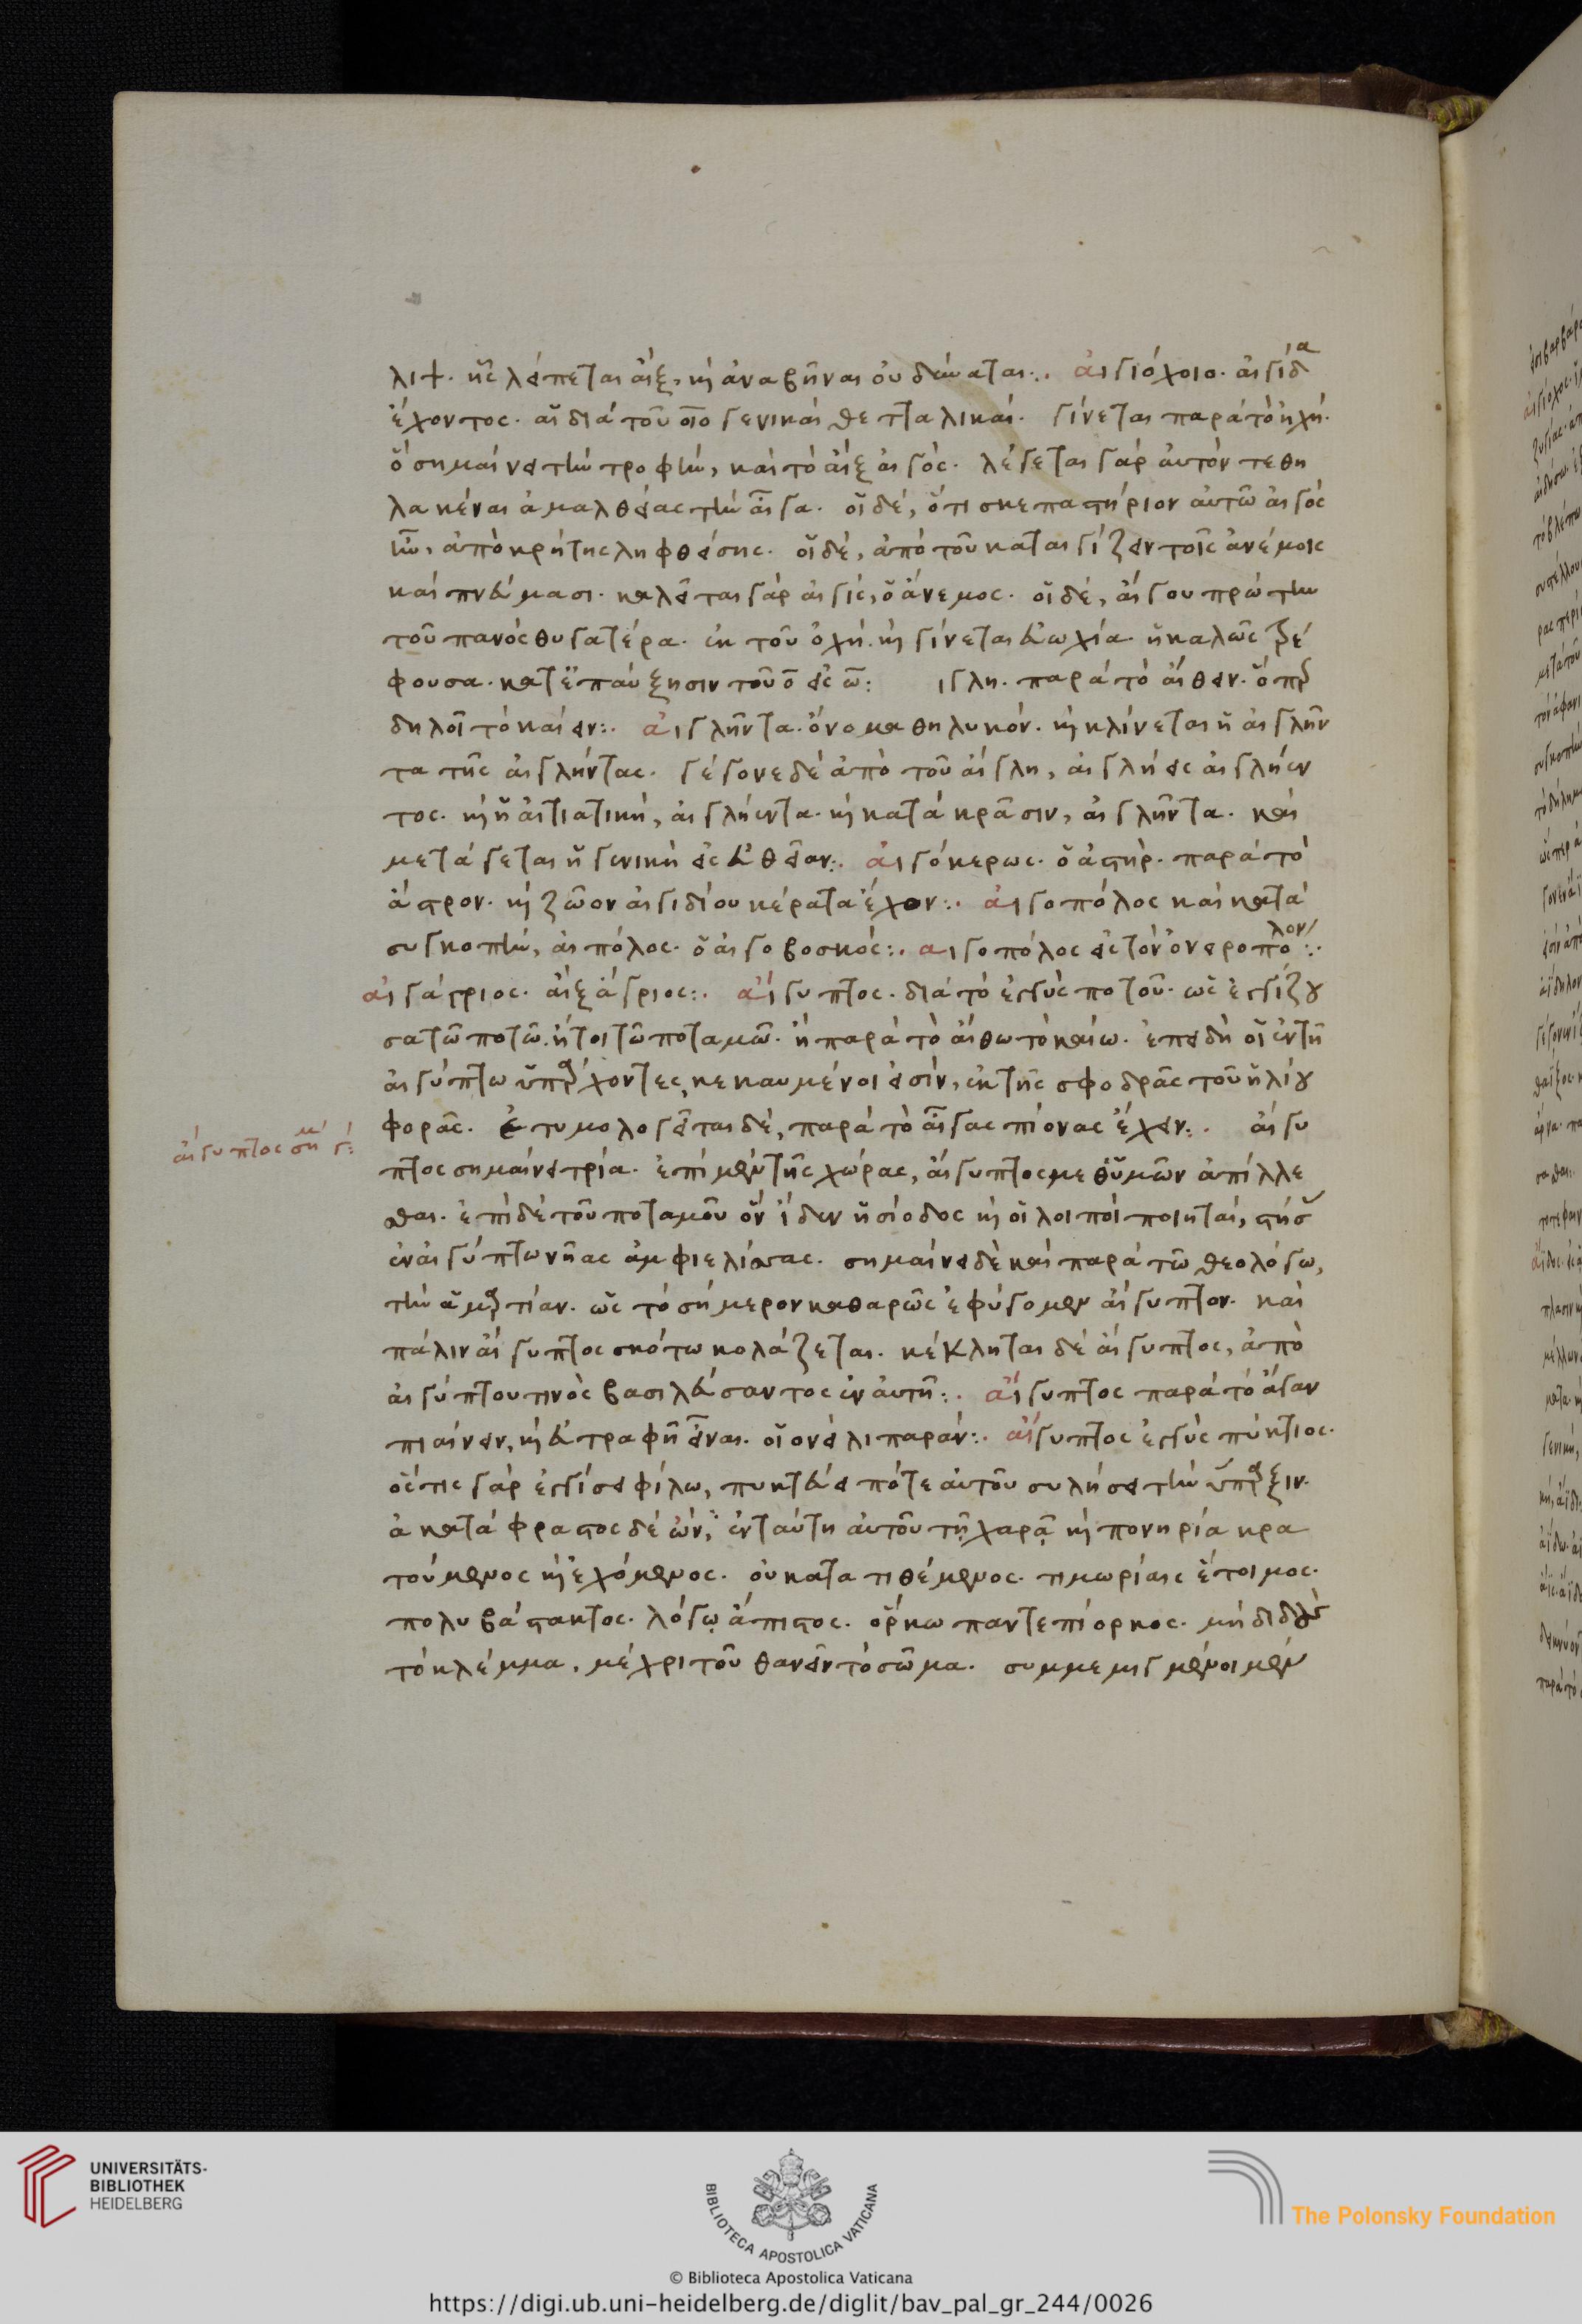 λιψ. ἧς λείπεται αἴξ, κὶ ἀναβῆναι οὐ δύναται:. αἰγιόχοιο. αἰγίδα
ἔχοντος. αἱ διὰ τοῦ οιο γενικαὶ θετταλικαί. γίνεται παρὰ τὸ ὀχή.
ὃ σημαίνει τὴν τροφήν, καὶ τὸ αἲξ αἰγός. λέγεται γὰρ αὐτὸν τεθη
λακέναι ἀμαλθείας τὴν αἶγα. οἱ δὲ, ὅτι σκεπαστήριον αὐτῶ αἰγὸς
ἦν, ἀπὸ κρήτης ληφθείσης. οἱ δὲ, ἀπὸ τοῦ καταιγίζειν τοῖς ἀνέμοις
καὶ πνεύμασι. καλεῖται γὰρ αἰγὶς, ὁ ἄνεμος. οἱ δὲ, αἴγου πρώτην
τοῦ πανὸς θυγατέρα. ἐκ τοῦ ὀχή. κὶ γίνεται εὐωχία. ἡ καλῶς τρέ
φουσα. κατ' ἐπαύξησιν τοῦ ο εἰς ω: ιγλη. παρὰ τὸ αἴθειν. ὅπερ
δηλοῖ τὸ καίειν:. αἰγλῆντα. ὄνομα θηλυκόν. κὶ κλίνεται ἡ αἰγλῆν
τα τῆς αἰγλήντας. γέγονε δὲ ἀπὸ τοῦ αἴγλη, αἰγλήεις αἰγλήεν
τος. κὶ ἡ αἰτιατικὴ, αἰγλήεντα. κὶ κατὰ κρᾶσιν, αἰγλῆντα. καὶ
μετάγεται ἡ γενικὴ εἰς εὐθεῖαν:. αἰγόκερως. ὁ ἀστήρ. παρὰ τὸ
ἄστρον. κὶ ζῶον αἰγιδίου κέρατα ἔχον:. αἰγοπόλος καὶ κατὰ
συγκοπὴν, αἰπόλος. ὁ αἰγοβοσκός:. αιγοπόλος εἰς τὸν ὀνειροπόλον:.
αἰγάγριος. αἲξ ἄγριος:. αἴγυπτος. διὰ τὸ ἐγγὺς ποτοῦ. ὡς ἐγγίζου
σα τῶ ποτῶ. ἤτοι τῶ ποταμῶ. ἢ παρὰ τὸ αἴθω τὸ καίω. ἐπειδὴ οἱ ἐν τῆ
αἰγύπτω ὑπάρχοντες, κεκαυμένοι εἰσὶν, ἐκ τῆς σφοδρᾶς τοῦ ἡλίου
φορᾶς. ἐτυμολογεῖται δὲ, παρὰ τὸ αἶγας πίονας ἔχειν:. αἴγυ
πτος σημαίνει τρία. ἐπὶ μὲν τῆς χώρας, αἴγυπτος μεθ' ὑμῶν ἀπίλλε
σθαι. ἐπὶ δὲ τοῦ ποταμοῦ ὃν ἴδεν ἡσίοδος κὶ οἱ λοιποὶ ποιηταὶ, στῆσ
ἐν αἰγύπτω νῆας ἀμφιελίσσας. σημαίνει δὲ καὶ παρὰ τῶ θεολόγω,
τὴν ἁμαρτίαν. ὡς τὸ σήμερον καθαρῶς ἐφύγομεν αἴγυπτον. καὶ
πάλιν αἴγυπτος σκότω κολάζεται. κέκληται δὲ αἴγυπτος, ἀπὸ
αἰγύπτου τινὸς βασιλεύσαντος ἐν αὐτῆ:. αἴγυπτος παρὰ τὸ ἄγαν
πιαίνειν, κὶ εὐτραφῆ εἶναι. οἱονεὶ λιπαράν:. αἴγυπτος ἐγγὺς πύκτιος.
ὅστις γὰρ ἐγγίσει φίλω, πυκτεύει πότε αὐτοῦ συλήσει τὴν ὕπαρξιν.
ἀκατάφραστος δὲ ὢν, ἐνταύτη αὐτοῦ τῆ χαρᾶ κὶ πονηρία κρα
τούμενος κὶ ἐχόμενος. οὐ κατατιθέμενος. τιμωρίαις ἕτοιμος.
πολυβάστακτος. λόγῳ ἄπιστος. ὅρκω παντεπίορκος. μὴ διδοὺς
τὸ κλέμμα, μέχρι τοῦ θανεῖν τὸ σῶμα. συμμεμιγμένοι μὲν
αἴγυπτος σημ γ:
UNIVERSITÄTS-
BIBLIOTHEK
HEIDELBERG
BIBLIOTECA APOSTOLICA VATICANA
The Polonsky Foundation
© Biblioteca Apostolica Vaticana
https://digi.ub.uni-heidelberg.de/diglit/bav_pal_gr_244/0026